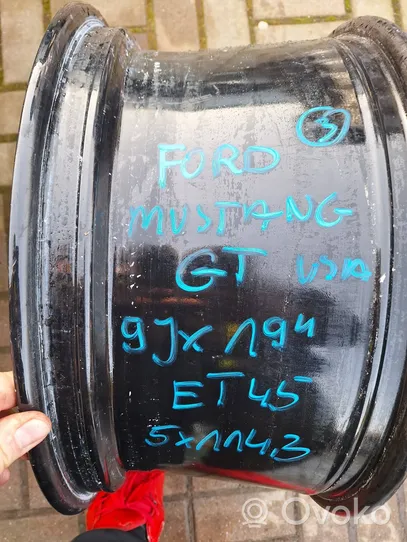 3
FORD
MUSTANG
GT USA
9Jx19"
ET45
5x114,3
©Ovoko